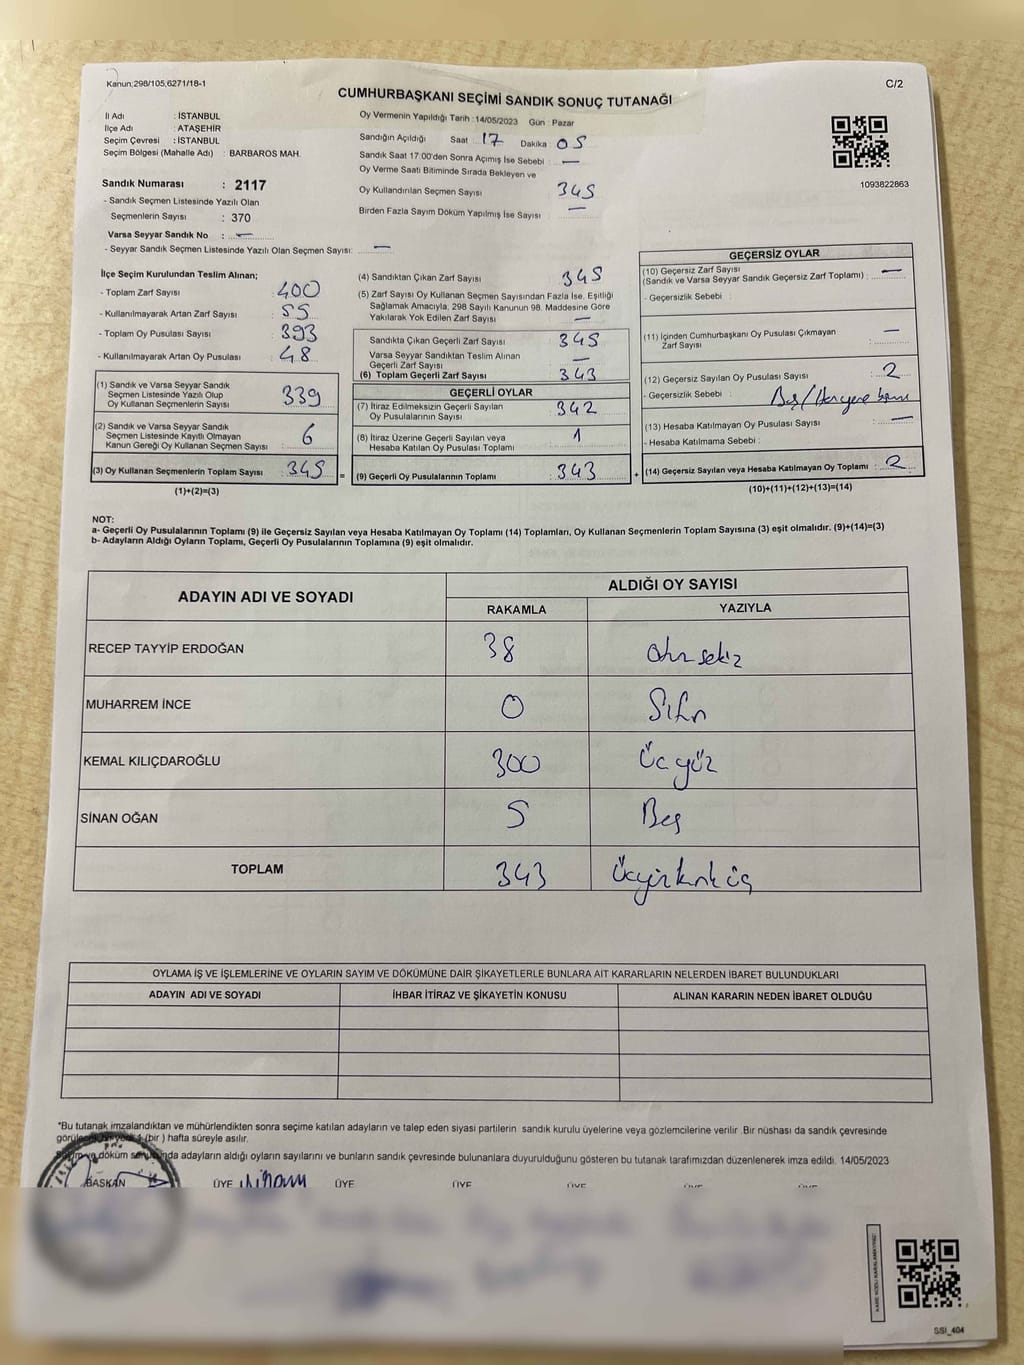 Kanun;298/105,6271/18-1
C/2
CUMHURBAŞKANI SEÇİMİ SANDIK SONUÇ TUTANAĞI
İl Adı : İSTANBUL
İlçe Adı : ATAŞEHİR
Seçim Çevresi : İSTANBUL
Seçim Bölgesi (Mahalle Adı) : BARBAROS MAH.
Oy Vermenin Yapıldığı Tarih : 14/05/2023 Gün : Pazar
Sandığın Açıldığı Saat 17 Dakika 05
Sandık Saat 17:00'den Sonra Açımış İse Sebebi : —
Oy Verme Saati Bitiminde Sırada Bekleyen ve
Oy Kullandırılan Seçmen Sayısı 345
Birden Fazla Sayım Döküm Yapılmış İse Sayısı —
1093822863
Sandık Numarası : 2117
- Sandık Seçmen Listesinde Yazılı Olan
Seçmenlerin Sayısı : 370
Varsa Seyyar Sandık No : —
- Seyyar Sandık Seçmen Listesinde Yazılı Olan Seçmen Sayısı: —
İlçe Seçim Kurulundan Teslim Alınan;
- Toplam Zarf Sayısı 400
- Kullanılmayarak Artan Zarf Sayısı 55
- Toplam Oy Pusulası Sayısı 393
- Kullanılmayarak Artan Oy Pusulası 48
(1) Sandık ve Varsa Seyyar Sandık
Seçmen Listesinde Yazılı Olup
Oy Kullanan Seçmenlerin Sayısı 339
(2) Sandık ve Varsa Seyyar Sandık
Seçmen Listesinde Kayıtlı Olmayan
Kanun Gereği Oy Kullanan Seçmen Sayısı 6
(3) Oy Kullanan Seçmenlerin Toplam Sayısı 345 =
(1)+(2)=(3)
(4) Sandıktan Çıkan Zarf Sayısı 345
(5) Zarf Sayısı Oy Kullanan Seçmen Sayısından Fazla İse, Eşitliği
Sağlamak Amacıyla, 298 Sayılı Kanunun 98. Maddesine Göre
Yakılarak Yok Edilen Zarf Sayısı —
Sandıkta Çıkan Geçerli Zarf Sayısı 345
Varsa Seyyar Sandıktan Teslim Alınan
Geçerli Zarf Sayısı —
(6) Toplam Geçerli Zarf Sayısı 343
GEÇERLİ OYLAR
(7) İtiraz Edilmeksizin Geçerli Sayılan
Oy Pusulalarının Sayısı 342
(8) İtiraz Üzerine Geçerli Sayılan veya
Hesaba Katılan Oy Pusulası Toplamı 1
(9) Geçerli Oy Pusulalarının Toplamı 343 +
GEÇERSİZ OYLAR
(10) Geçersiz Zarf Sayısı
(Sandık ve Varsa Seyyar Sandık Geçersiz Zarf Toplamı) : —
- Geçersizlik Sebebi :
(11) İçinden Cumhurbaşkanı Oy Pusulası Çıkmayan
Zarf Sayısı : —
(12) Geçersiz Sayılan Oy Pusulası Sayısı : 2
- Geçersizlik Sebebi : Boş/
(13) Hesaba Katılmayan Oy Pusulası Sayısı : —
- Hesaba Katılmama Sebebi :
(14) Geçersiz Sayılan veya Hesaba Katılmayan Oy Toplamı : 2
(10)+(11)+(12)+(13)=(14)
NOT:
a- Geçerli Oy Pusulalarının Toplamı (9) ile Geçersiz Sayılan veya Hesaba Katılmayan Oy Toplamı (14) Toplamları, Oy Kullanan Seçmenlerin Toplam Sayısına (3) eşit olmalıdır. (9)+(14)=(3)
b- Adayların Aldığı Oyların Toplamı, Geçerli Oy Pusulalarının Toplamına (9) eşit olmalıdır.
ADAYIN ADI VE SOYADI ALDIĞI OY SAYISI
RAKAMLA YAZIYLA
RECEP TAYYİP ERDOĞAN 38 otuz sekiz
MUHARREM İNCE 0 Sıfır
KEMAL KILIÇDAROĞLU 300 Üç yüz
SİNAN OĞAN 5 Beş
TOPLAM 343 Üçyüzkırk üç
OYLAMA İŞ VE İŞLEMLERİNE VE OYLARIN SAYIM VE DÖKÜMÜNE DAİR ŞİKAYETLERLE BUNLARA AİT KARARLARIN NELERDEN İBARET BULUNDUKLARI
ADAYIN ADI VE SOYADI İHBAR İTİRAZ VE ŞİKAYETİN KONUSU ALINAN KARARIN NEDEN İBARET OLDUĞU
*Bu tutanak imzalandıktan ve mühürlendikten sonra seçime katılan adayların ve talep eden siyasi partilerin sandık kurulu üyelerine veya gözlemcilerine verilir. Bir nüshası da sandık çevresinde
(bir) hafta süreyle asılır.
döküm adayların aldığı oyların sayılarını ve bunların sandık çevresinde bulunanlara duyurulduğunu gösteren bu tutanak tarafımızdan düzenlenerek imza edildi. 14/05/2023
BAŞKAN ÜYE ÜYE ÜYE ÜYE
KARE KODU KARALAMAYINIZ!
SSI_404